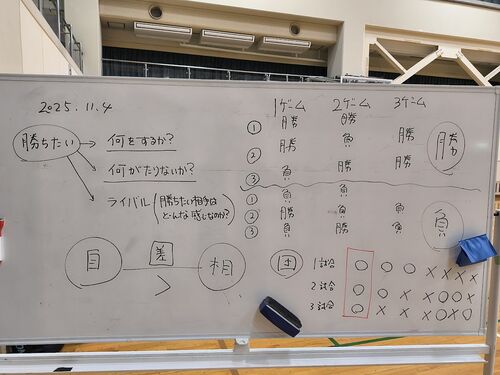 2025.11.4
勝ちたい
何をするか?
何がたりないか?
ライバル(勝ちたい相手は
どんな感じなのか?)
自 差 相
>
1ゲーム 2ゲーム 3ゲーム
① 勝 勝
② 勝 負 勝
③ 負 勝 勝
勝
① 負 負
② 勝 負 負
③ 負 勝 負
負
団
1試合 ○ ○ ○ × × × ×
2試合 ○ ○ × × ○ ○ ×
3試合 ○ × × × ○ × ○